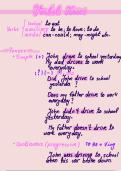 Verbal tenses
lexical: to eat
Verb auxiliary: to be, to have, to do
modal: can-could, may-might etc.
Tenses:
• Simple (+) John drove to school yesterday.
My dad drives to work
everyday.
(?) Did John drive to school
yesterday?
Does my father drive to work
everyday?
(-) John didn't drive to school
yesterday.
My father doesn't drive to
work everyday.
• Continuous (progressive) TO BE + Ving
John was driving to school
when his car broke down.